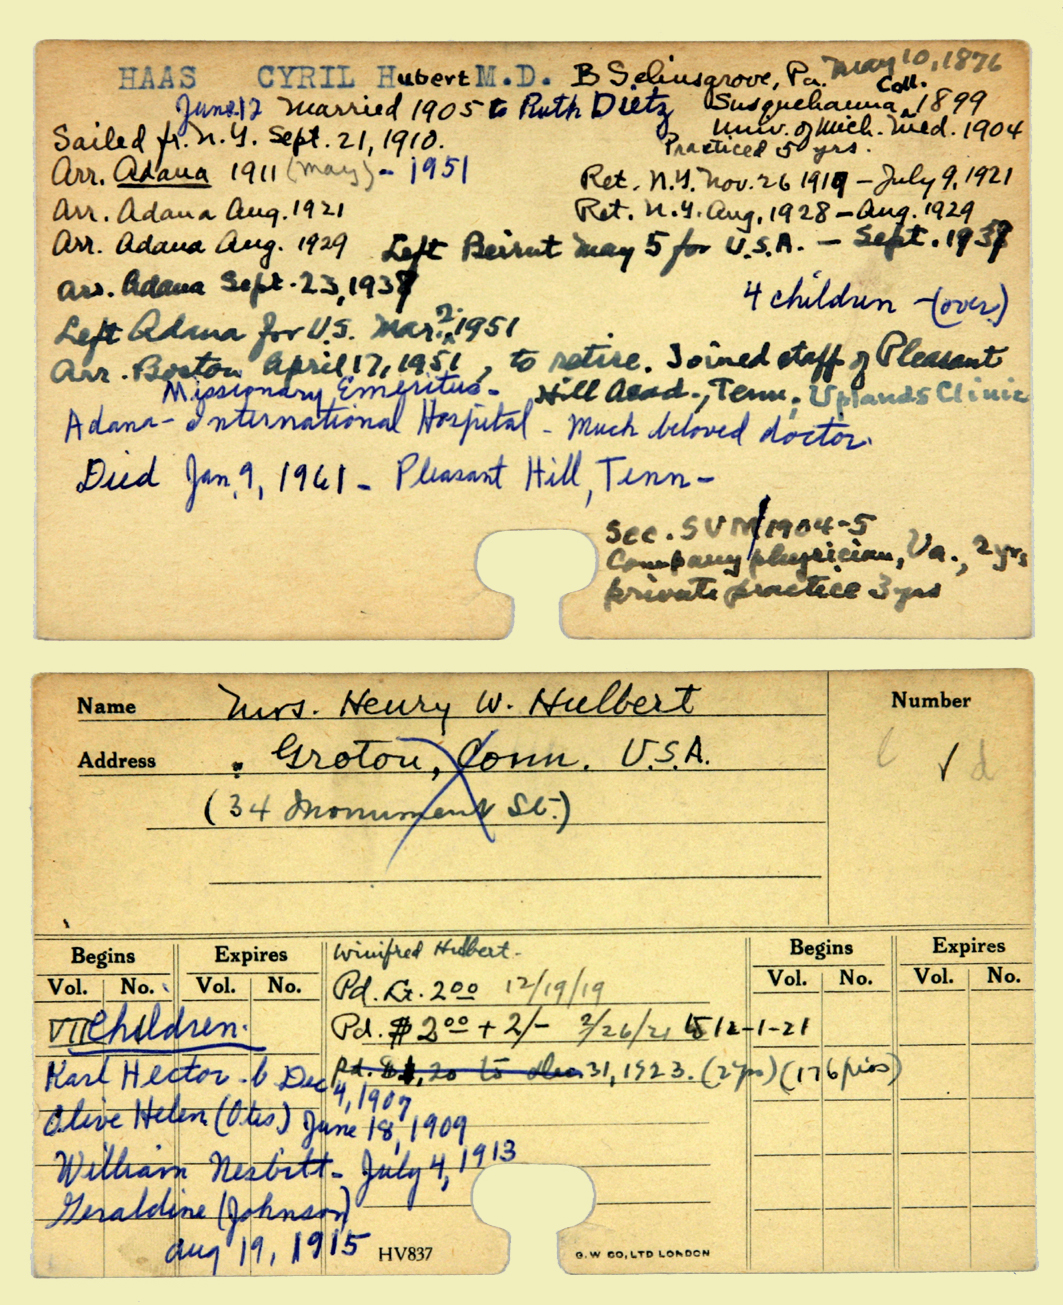 HAAS CYRIL Hubert M.D. B Selinsgrove, Pa. May 10, 1876
June 12 Married 1905 to Ruth Dietz Susquehanna Coll. 1899
Sailed fr. N.Y. Sept. 21, 1910. Univ. of Mich. Med. 1904
Practiced 5 yrs.
Arr. Adana 1911 (May) - 1951 Ret. N.Y. Nov. 26 1919 - July 9, 1921
Arr. Adana Aug. 1921 Ret. N.Y. Aug, 1928 - Aug. 1929
Arr. Adana Aug. 1929 Left Beirut May 5 for U.S.A. - Sept. 1937
Arr. Adana Sept. 23, 1937
4 children - (over)
Left Adana for U.S. Mar. 2?, 1951
Arr. Boston April 17, 1951, to retire. Joined staff of Pleasant
Missionary Emeritus - Hill Acad., Tenn. Uplands Clinic
Adana - International Hospital - Much beloved doctor.
Died Jan. 9, 1961 - Pleasant Hill, Tenn -
Sec. SVM 1904-5
Company physician, Va., 2 yrs
private practice 3 yrs
Name Mrs. Henry W. Hulbert Number
Address Groton, Conn. U.S.A. √ d
(34 Monument St.)
Begins Expires Winifred Hulbert - Begins Expires
Vol. No. Vol. No. Pd. Lt. 2 00 12/19/19 Vol. No. Vol. No.
VII Children. Pd. $ 2 00 + 2/- 2/26/21 to 12-1-21
Pd. $1,20 to Dec. 31, 1923. (2 yrs) (176 pias)
Karl Hector - b Dec 4, 1907
Olive Helen (Otis) June 18, 1909
William Nesbitt - July 4, 1913
Geraldine (Johnson)
Aug 19, 1915 HV837 G.W CO, LTD LONDON